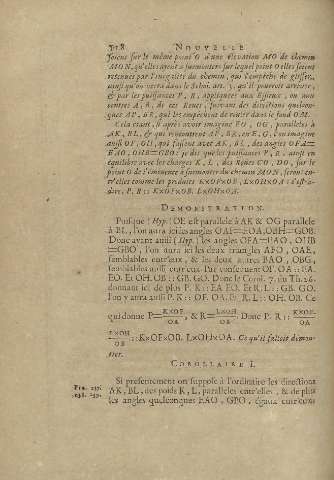 318 NOUVELLE
soient sur le même point O d'une élévation MO de chemin
MON, qu'elles ayent à surmonter sur lequel point O elles soient
retenuës par l'inégalité du chemin, qui l'empêche de glisser,
ainsi qu'on verra dans le Schol. art. 3. qu'il pourroit arriver,
& par les puissances P, R, appliquées aux Essieux, ou aux
centres A, B, de ces Roues, suivant des directions quelcon-
ques AP, BR, qui les empêchent de rouler dans le fond OM.
Cela étant, si après avoir imaginé FO, OG, paralleles à
AK, BL, & qui rencontrent AP, BR, en F, G, l'on imagine
aussi OF, OH, qui fassent avec AK, BL, des angles OFA=
EAO, OHB=GBO; je dis que les puissances P, R, ainsi en
équilibre avec les charges K, L, des Roues CO, DO, sur le
point O de l'éminence à surmonter du chemin MON, seront en-
tr'elles comme les produits K×OF×OB, L×OH×OA: c'est-à-
dire, P. R :: K×OF×OB. L×OH×OA.
DEMONSTRATION.
Puisque (Hyp.) OE est parallele à AK & OG parallele
à BL, l'on aura ici les angles OAF=EOA, OBH=GOB.
Donc avant aussi (Hyp.) les angles OFA=EAO, OHB
=GBO; l'on aura ici les deux triangles AFO, OAE,
semblables entr'eux, & les deux autres BAO, OBG,
semblables aussi entr'eux. Par consequent OF. OA :: EA.
EO. Et OH. OB :: GB. GO. Donc le Corol. 7. du Th. 26.
donnant ici de plus P. K :: EA. EO. Et R. L :: GB. GO.
l'on y aura aussi P. K :: OF. OA. & R. L :: OH. OB. Ce
qui donne P=K×OF/OA, & R=L×OH/OB. Donc P. R :: K×OF/OA.
L×OH/OB :: K×OF×OB. L×OH×OA. Ce qu'il falloit démon-
trer.
COROLLAIRE I.
Si presentement on suppose à l'ordinaire les directions
FIG. 237.
238. 239.
AK, BL, des poids K, L, paralleles entr'elles, & de plus
les angles quelconques EAO, GBO, égaux entr'eux